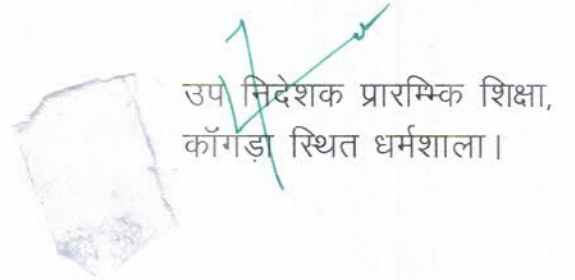 उप निदेशक प्रारम्भिक शिक्षा,
कॉगड़ा स्थित धर्मशाला।